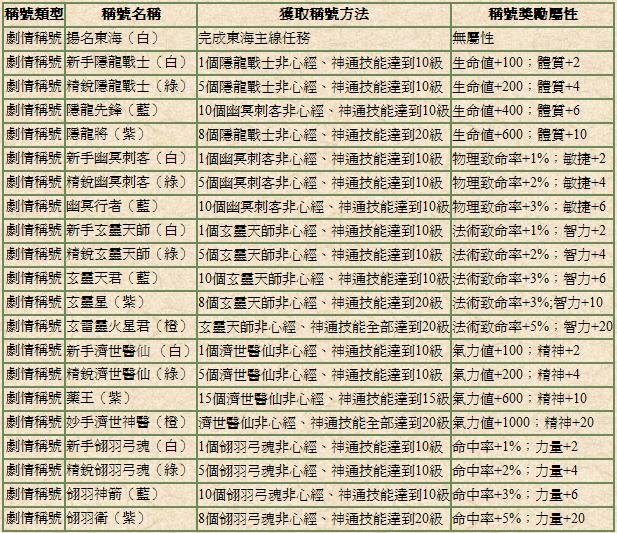 稱號類型 稱號名稱 獲取稱號方法 稱號獎勵屬性
劇情稱號 揚名東海（白） 完成東海主線任務 無屬性
劇情稱號 新手隱龍戰士（白） 1個隱龍戰士非心經、神通技能達到10級 生命值+100；體質+2
劇情稱號 精銳隱龍戰士（綠） 5個隱龍戰士非心經、神通技能達到10級 生命值+200；體質+4
劇情稱號 隱龍先鋒（藍） 10個幽冥刺客非心經、神通技能達到10級 生命值+400；體質+6
劇情稱號 隱龍將（紫） 8個隱龍戰士非心經、神通技能達到20級 生命值+600；體質+10
劇情稱號 新手幽冥刺客（白） 1個幽冥刺客非心經、神通技能達到10級 物理致命率+1%；敏捷+2
劇情稱號 精銳幽冥刺客（綠） 5個幽冥刺客非心經、神通技能達到10級 物理致命率+2%；敏捷+4
劇情稱號 幽冥行者（藍） 10個幽冥刺客非心經、神通技能達到10級 物理致命率+3%；敏捷+6
劇情稱號 新手玄靈天師（白） 1個玄靈天師非心經、神通技能達到10級 法術致命率+1%；智力+2
劇情稱號 精銳玄靈天師（綠） 5個玄靈天師非心經、神通技能達到10級 法術致命率+2%；智力+4
劇情稱號 玄靈天君（藍） 10個玄靈天師非心經、神通技能達到10級 法術致命率+3%；智力+6
劇情稱號 玄靈星（紫） 8個玄靈天師非心經、神通技能達到20級 法術致命率+3%;智力+10
劇情稱號 玄雷靈火星君（橙） 玄靈天師非心經、神通技能全部達到20級 法術致命率+5%；智力+20
劇情稱號 新手濟世醫仙（白） 1個濟世醫仙非心經、神通技能達到10級 氣力值+100；精神+2
劇情稱號 精銳濟世醫仙（綠） 5個濟世醫仙非心經、神通技能達到10級 氣力值+200；精神+4
劇情稱號 藥王（紫） 15個濟世醫仙非心經、神通技能達到15級 氣力值+600；精神+10
劇情稱號 妙手濟世神醫（橙） 濟世醫仙非心經、神通技能全部達到20級 氣力值+1000；精神+20
劇情稱號 新手翎羽弓魂（白） 1個翎羽弓魂非心經、神通技能達到10級 命中率+1%；力量+2
劇情稱號 精銳翎羽弓魂（綠） 5個翎羽弓魂非心經、神通技能達到10級 命中率+2%；力量+4
劇情稱號 翎羽神箭（藍） 10個翎羽弓魂非心經、神通技能達到10級 命中率+3%；力量+6
劇情稱號 翎羽衛（紫） 8個翎羽弓魂非心經、神通技能達到20級 命中率+5%；力量+20